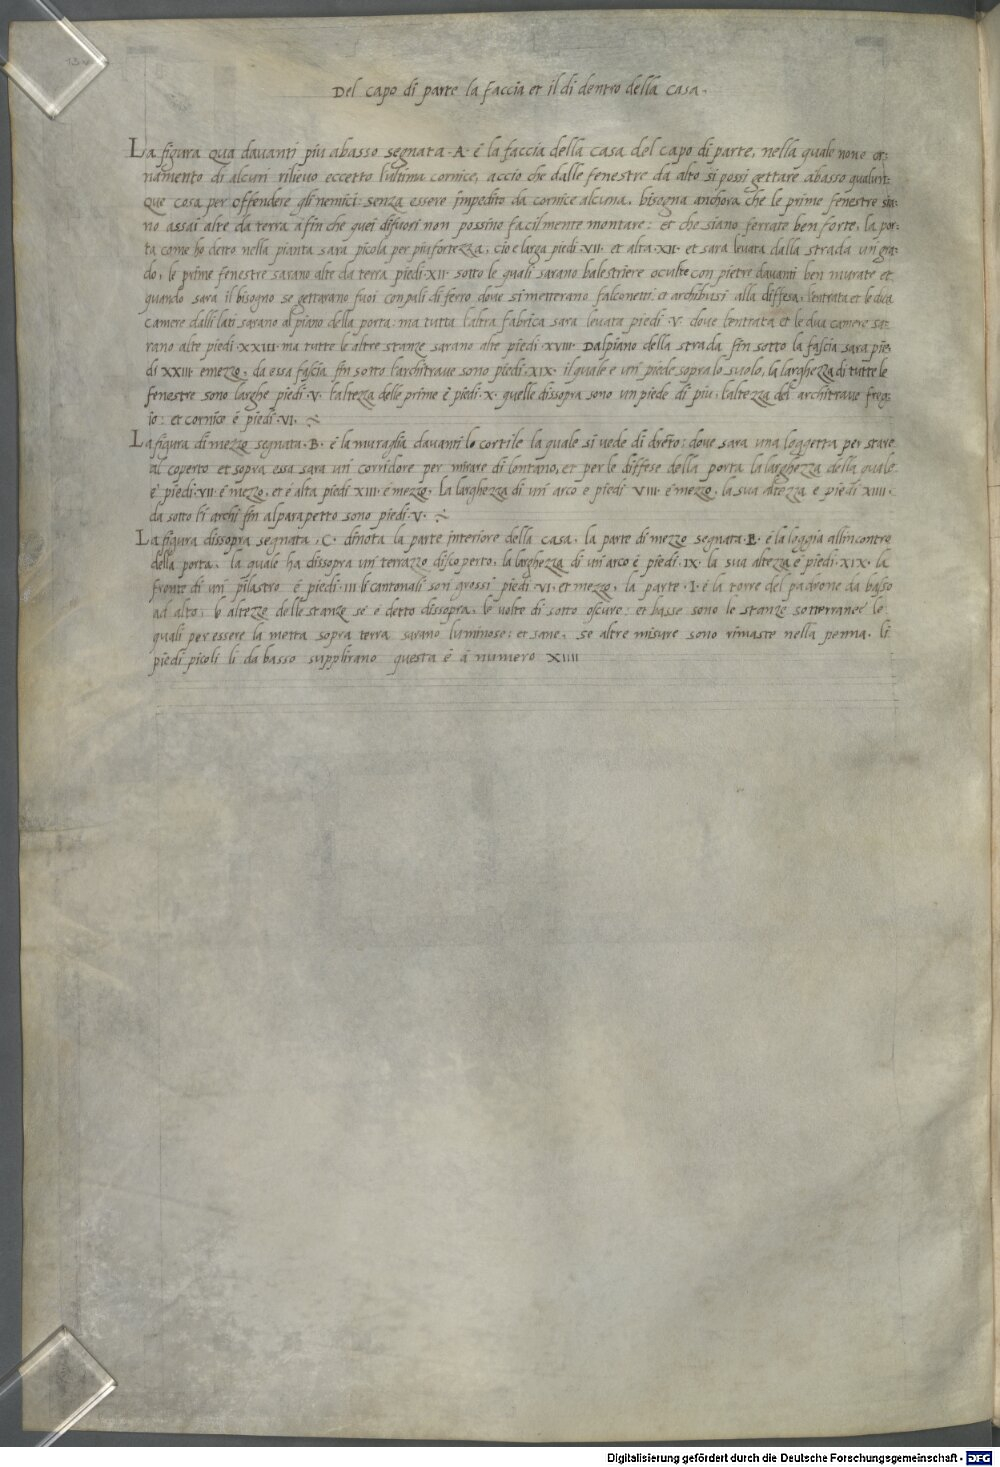 13v
Del capo di parte la faccia et il di dentro della casa.
La figura qua davanti piu abasso segnata .A. è la faccia della casa del capo di parte, nella quale non è or-
namento di alcun rilievo eccetto l'ultima cornice, accio che dalle fenestre da alto si possi gettare abasso qualun-
que cosa per offendere gli nemici: senza essere impedito da cornice alcuna, bisogna anchora che le prime fenestre sia-
no assai alte da terra afin che quei difuori non possino facilmente montare: et che siano ferrate ben forte, la por-
ta come ho detto nella pianta sara picola per piu fortezza, cio è larga piedi .VII. et alta .XII. et sara levata dalla strada un gra-
do, le prime fenestre sarano alte da terra piedi .XII. sotto le quali sarano balestriere oculte con pietre davanti ben murate et
quando sara il bisogno se gettarano fuoi con pali di ferro, dove si metterano falconetti, et archibusi alla diffesa, l'entrata et le dua
camere dalli lati sarano al piano della porta, ma tutta l'altra fabrica sara levata piedi .V. dove l'entrata et le dua camere sa-
rano alte piedi .XXIII. ma tutte le altre stanze sarano alte piedi .XVIII. Dal piano della strada fin sotto la fascia sara pie-
di XXIII e mezzo, da essa fascia fin sotto l'architrave sono piedi .XIX. il quale è un piede sopra lo suolo, la larghezza di tutte le
fenestre sono larghe piedi .V. l'altezza delle prime è piedi .X. quelle dissopra sono un piede di piu, l'altezza del architrave freg-
io: et cornice è piedi .VI.
La figura di mezzo segnata .B. è la muraglia davanti lo cortile la quale si vede di drēto: dove sara una loggetta per stare
al coperto et sopra essa sara un corridore per mirare di lontano, et per le diffese della porta la larghezza della quale
è piedi .VII. e mezzo, et è alta piedi XIII e mezzo, La larghezza di un arco è piedi VIII e mezzo, la sua altezza è piedi XIIII.
da sotto li archi fin al parapetto sono piedi .V.
La figura dissopra segnata .C. dinota la parte interiore della casa, la parte di mezzo segnata .E. è la loggia all'incontro
della porta, la quale ha dissopra un terrazzo discoperto, la larghezza di un arco è piedi .IX. la sua altezza è piedi .XIX. la
fronte di un pilastro è piedi .III. li cantonali son grossi piedi .VI. et mezzo, la parte .I. è la torre del padrone da basso
ad alto, le altezze delle stanze se è detto dissopra, le volte di sotto oscure: et basse sono le stanze sotterranee le
quali per essere la metta sopra terra sarano luminose: et sane, se altre misure sono rimaste nella penna, li
piedi picoli li da basso supplirano questa è a numero XIIII
Digitalisierung gefördert durch die Deutsche Forschungsgemeinschaft - DFG